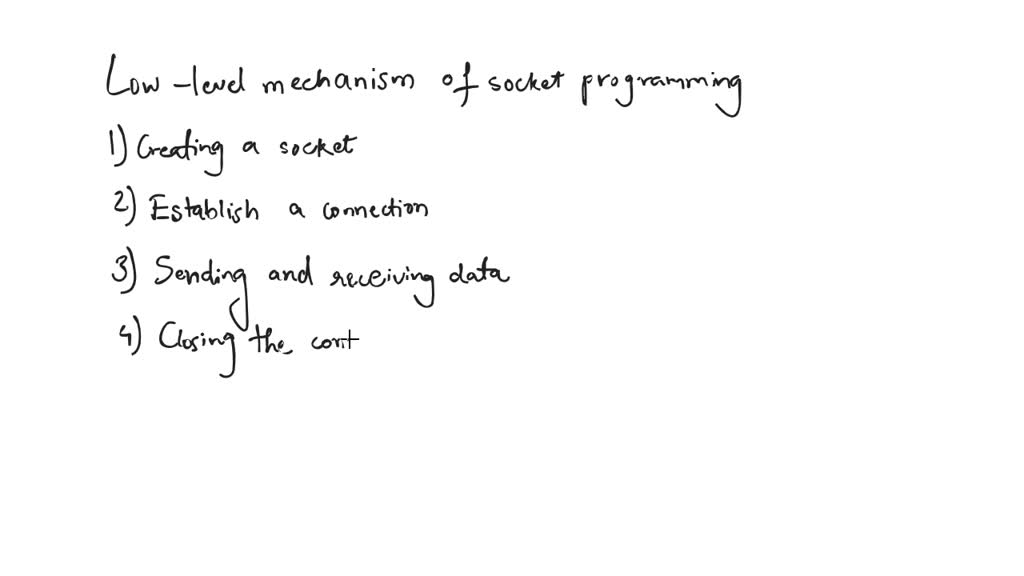 Low-level mechanism of socket programming
1) Creating a socket
2) Establish a connection
3) Sending and receiving data
4) Closing the cont